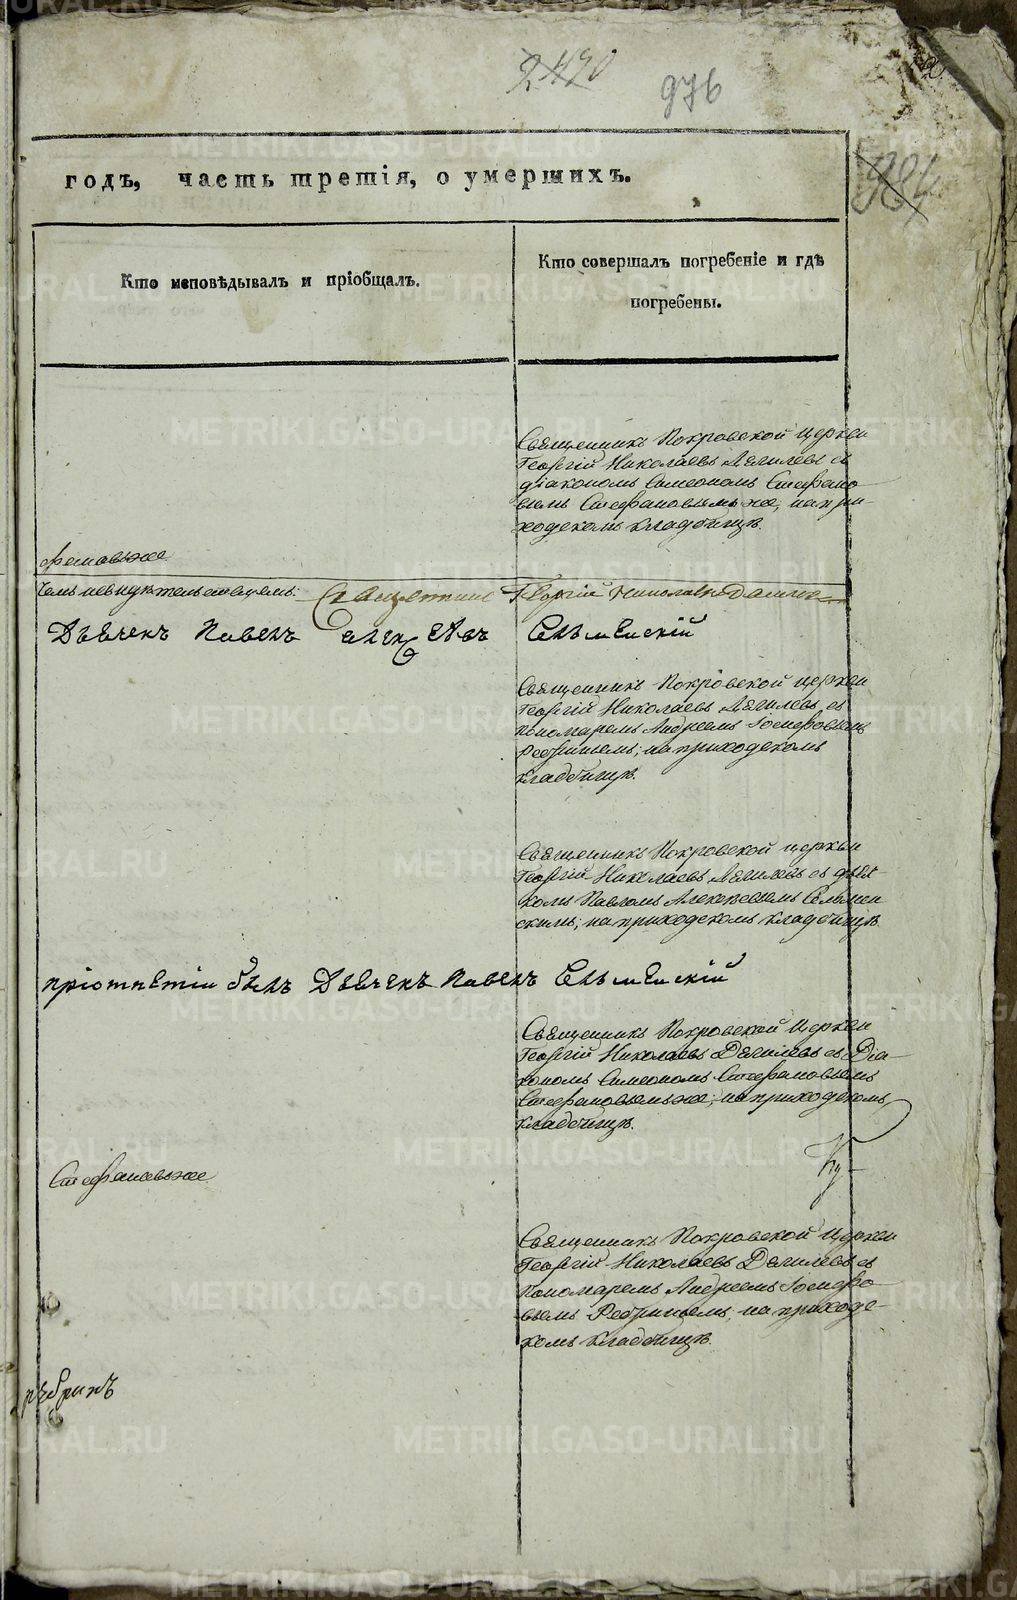 2420
976
984
годъ, часть третія, о умершихъ.
Кто исповѣдывалъ и пріобщалъ.
Кто совершалъ погребеніе и гдѣ
погребены.
Священникъ Покровской церкви
Георгій Николаевъ Дягилевъ съ
діакономъ Симеономъ Стефано-
вымъ Стефановымъ же, на при-
ходскомъ кладбищѣ.
Священникъ Георгій Николаевъ
Дьячекъ Павелъ Алексѣевъ Сельменскій
Священникъ Покровской церкви
Георгій Николаевъ Дягилевъ съ
пономаремъ Андреемъ Іосифовымъ
Ребринымъ; на приходскомъ
кладбищѣ.
Священникъ Покровской церкви
Георгій Николаевъ Дягилевъ съ дьяч-
комъ Павломъ Алексѣевымъ Сельмен-
скимъ; на приходскомъ кладбищѣ.
при отпетіи былъ Дьячекъ Павелъ Сельменскій
Священникъ Покровской Церкви
Георгій Николаевъ Дягилевъ съ Діа-
кономъ Симеономъ Стефановымъ
Стефановымъ же; на приходскомъ
кладбищѣ.
Ку-
Стефановъ же
Священникъ Покровской Церкви
Георгій Николаевъ Дягилевъ съ
пономаремъ Андреемъ Іосифо-
вымъ Ребринымъ, на приходс-
комъ кладбищѣ.
рѣбринъ
METRIKI.GASO-URAL.RU